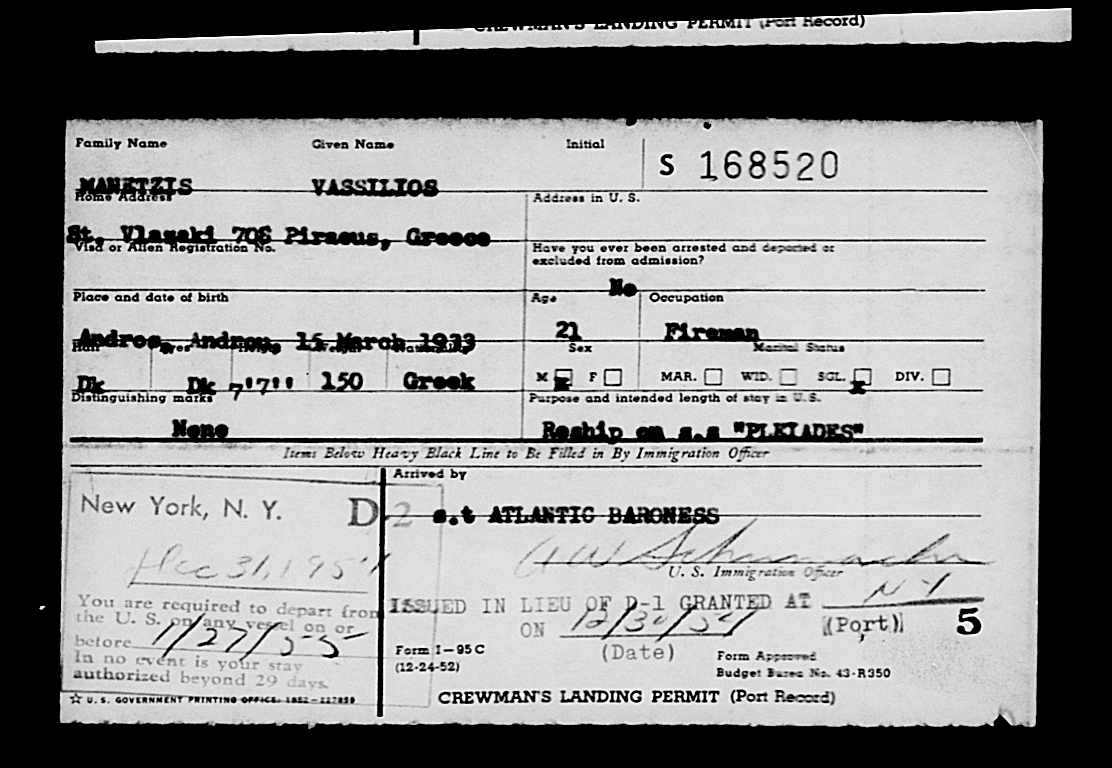 CREWMAN'S LANDING PERMIT (Port Record)
Family Name Given Name Initial S 168520
MANETZIS VASSILIOS
Home Address Address in U. S.
St. Vlasaki 706 Piraeus, Greece
Visa or Alien Registration No. Have you ever been arrested and deported or
excluded from admission?
No
Place and date of birth Age Occupation
Andros, Androu, 15 March 1933 21 Fireman
Hair Eyes Height Weight Nationality Sex Marital Status
Dk Dk 7'7'' 150 Greek M x F MAR. WID. SGL. x DIV.
Distinguishing marks Purpose and intended length of stay in U.S.
None Reship on s.s "PLEIADES"
Items Below Heavy Black Line to Be Filled in By Immigration Officer
Arrived by
New York, N. Y. D-2 s.t ATLANTIC BARONESS
Dec 31, 1954
U. S. Immigration Officer
You are required to depart from
the U. S. on any vessel on or
before 1/27/55
In no event is your stay
authorized beyond 29 days.
ISSUED IN LIEU OF D-1 GRANTED AT N Y
ON 12/30/54 (Port) 5
(Date)
Form I-95 C
(12-24-52)
Form Approved
Budget Bureau No. 43-R350
☆ U. S. GOVERNMENT PRINTING OFFICE: 1952
CREWMAN'S LANDING PERMIT (Port Record)